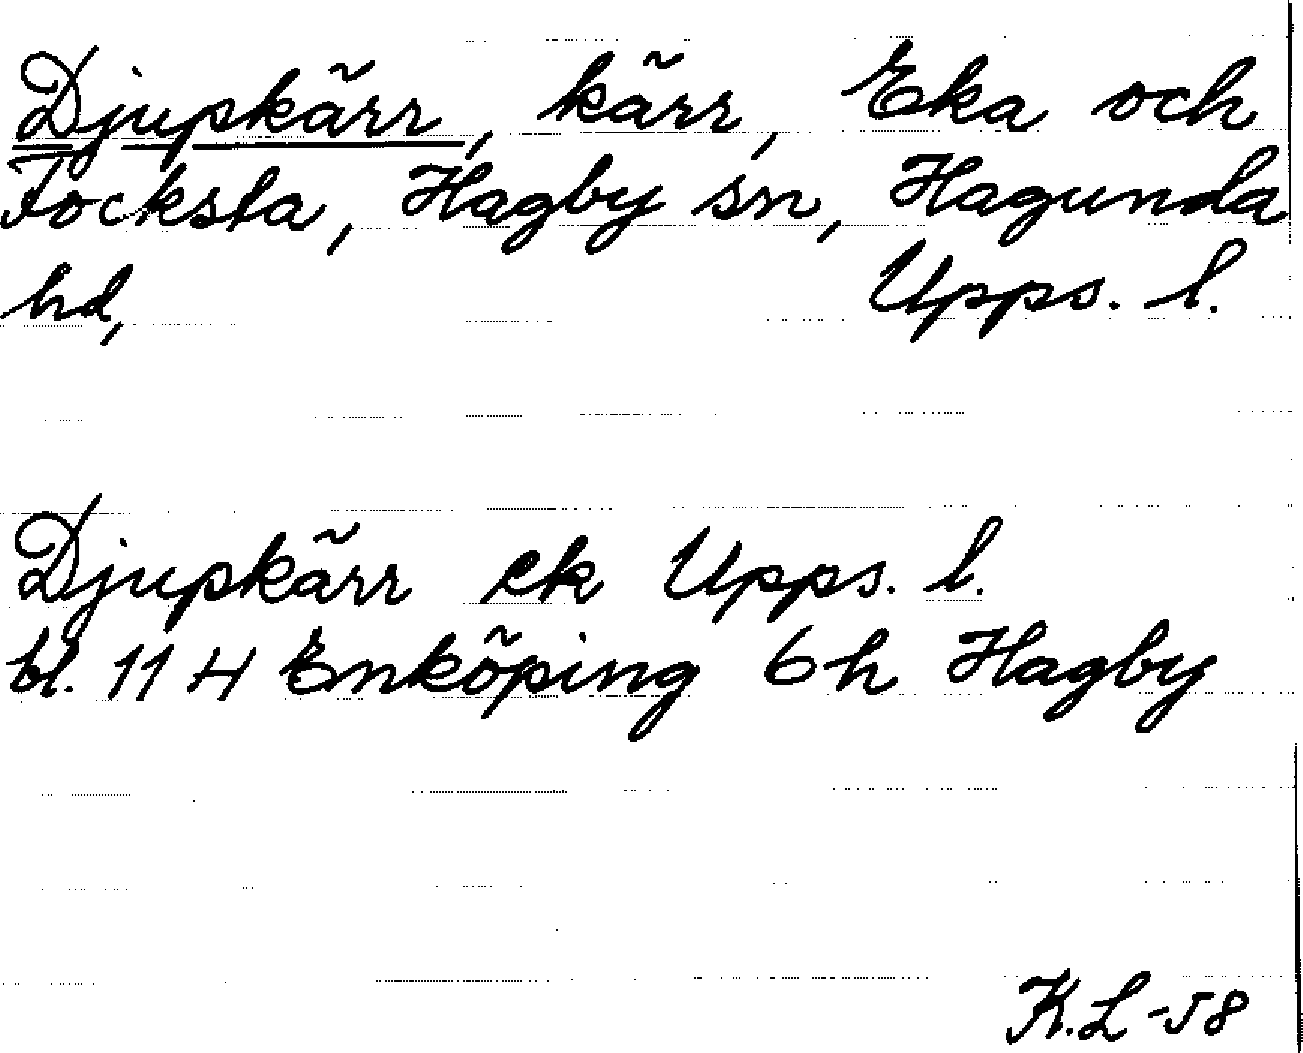 Djupkärr, kärr, Eka och
Focksta, Hagby sn, Hagunda
hd, Upps. l.
Djupkärr ek Upps. l.
bl. 114 Enköping 6h Hagby
K.L -58